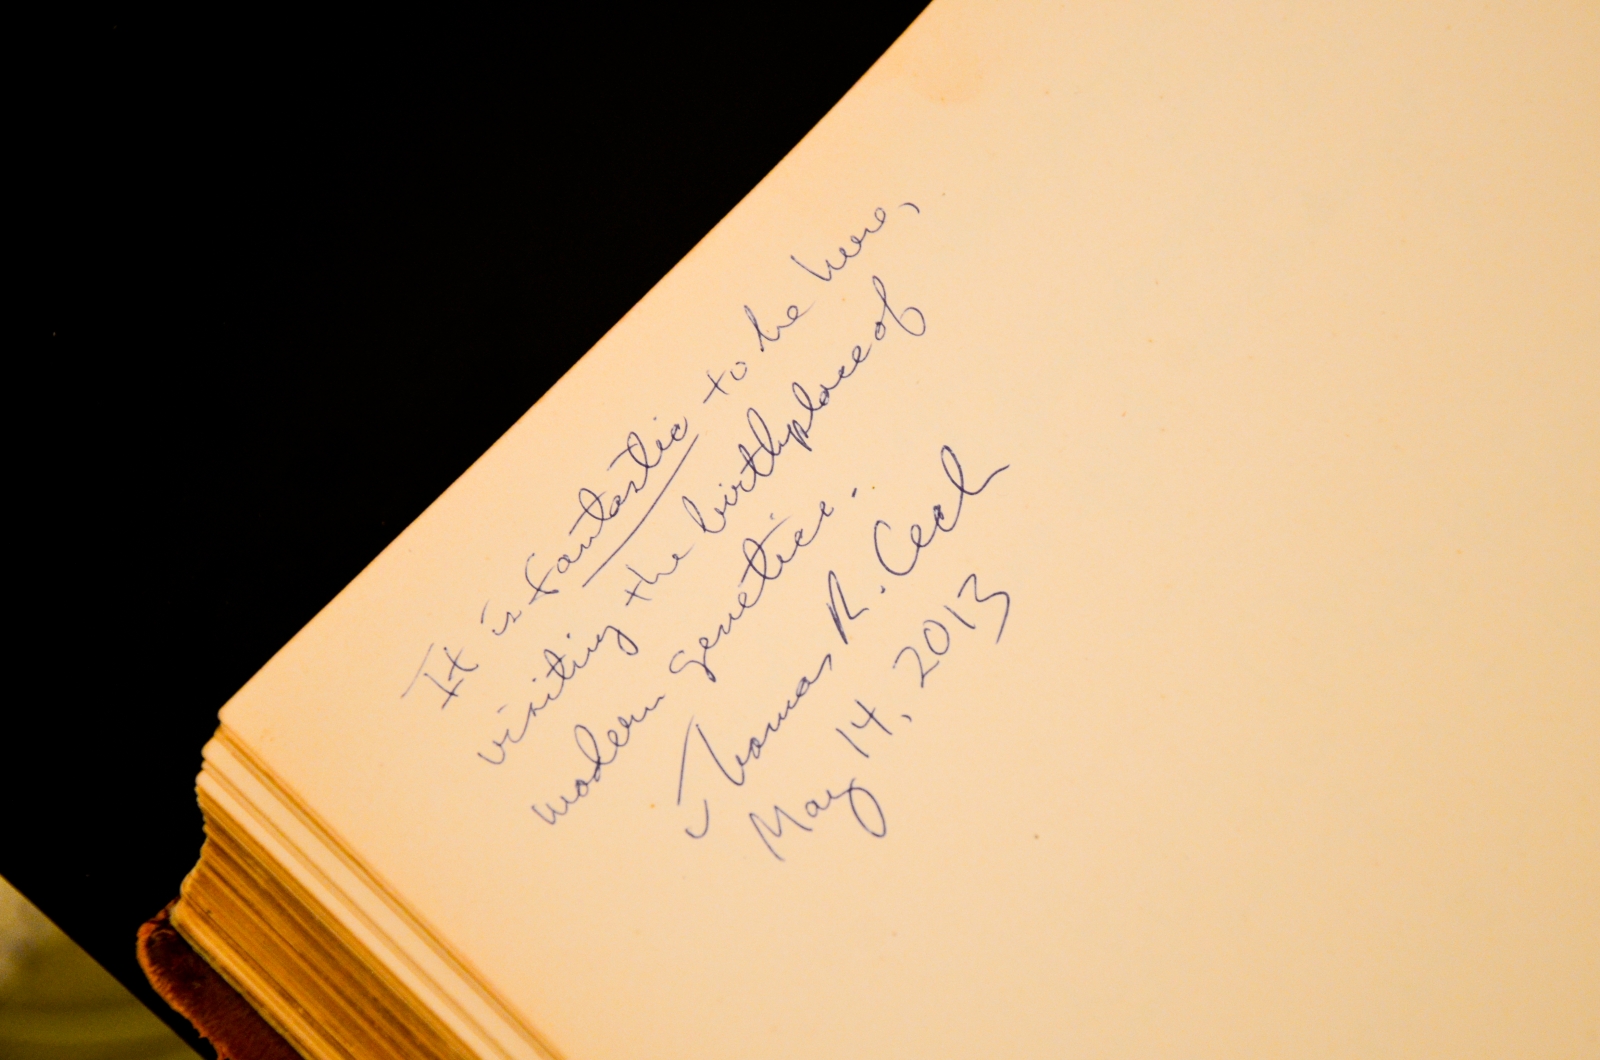 It is fantastic to be here,
visiting the birthplace of
modern genetics.
Thomas R. Cech
May 14, 2013